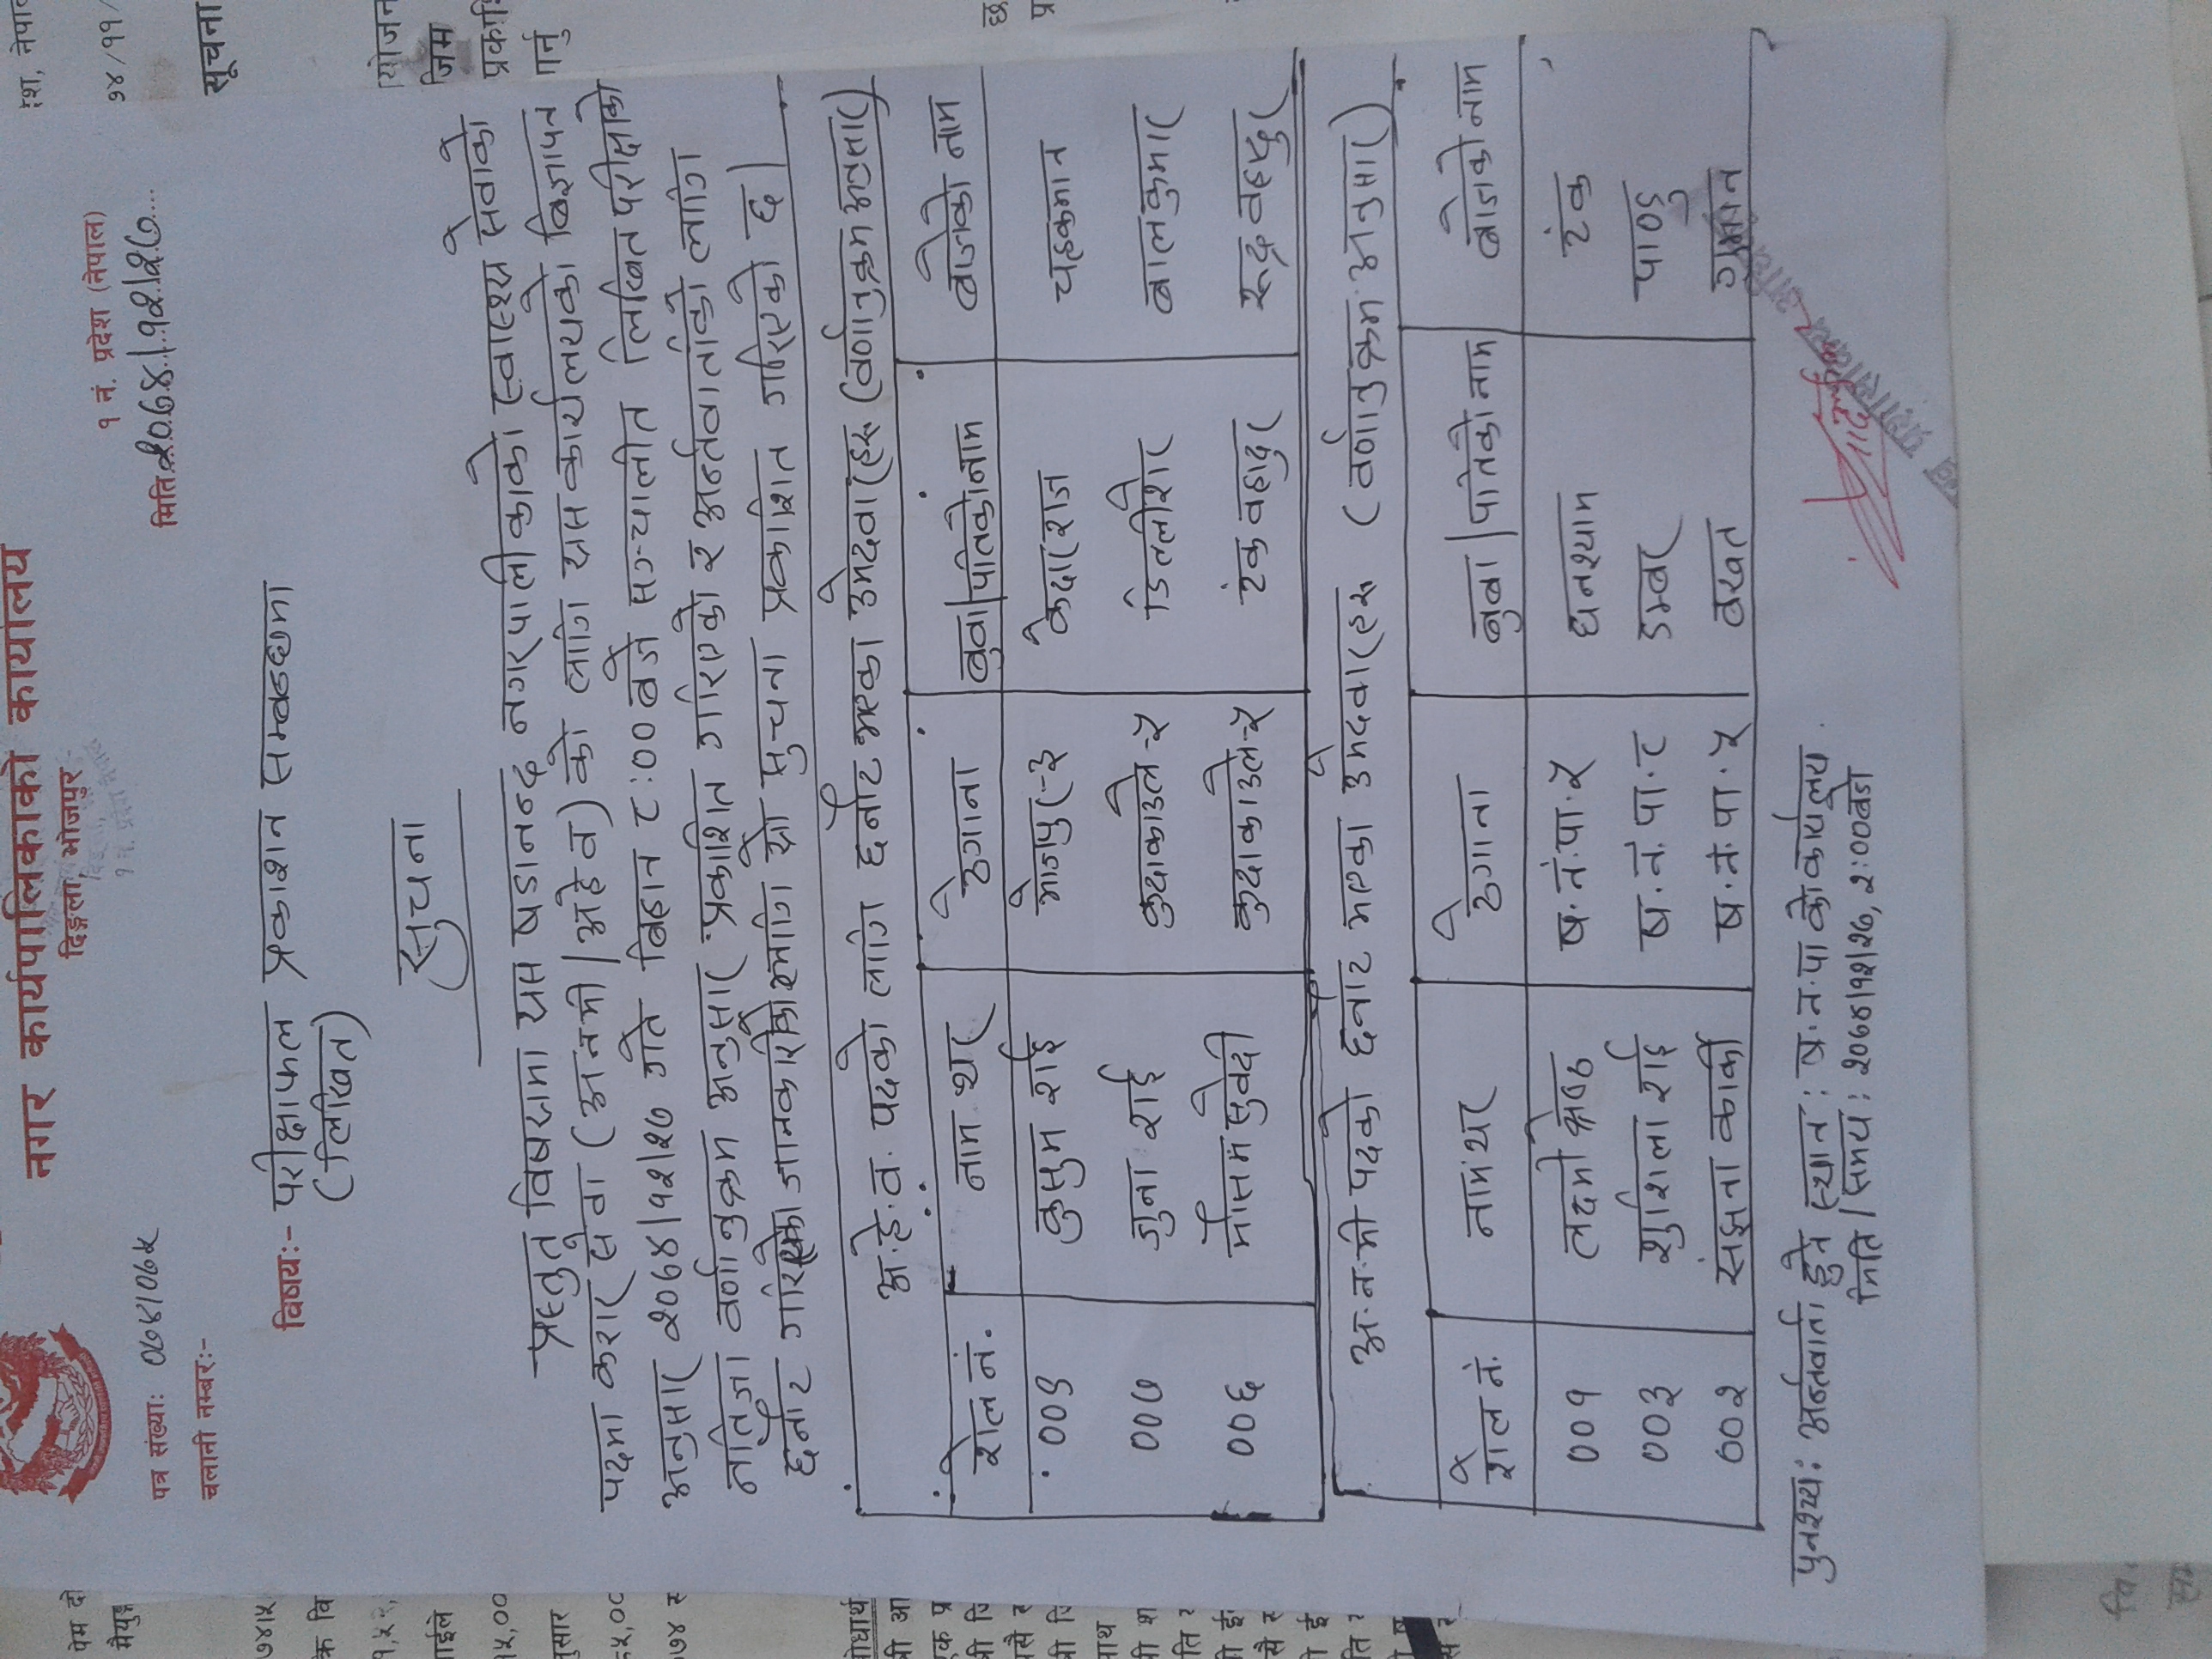 नगर कार्यपालिकाको कार्यालय
दिङ्गला, भोजपुर
१ नं. प्रदेश (नेपाल)
पत्र संख्या: ०७४/०७५
मिति २०७४/१२/२७
चलानी नम्बर:-
विषय:- परीक्षाफल प्रकाशन सम्बन्धमा
(लिखित)
सुचना
प्रस्तुत विषयमा यस षडानन्द नगरपालीकाको स्वास्थ्य सेवाको
पदमा करार सेवा (अनमी/अहेव) को लागि यस कार्यलयको विज्ञापन
अनुसार २०७४/१२/२७ गते विहान ८:०० बजे सञ्चालीत लिखित परीक्षाको
नतिजा वर्णानुक्रम अनुसार प्रकाशित गरिएको र अर्न्तवार्ताको लागि
छनौट गरिएको जानकारीको लागि यो सुचना प्रकाशित गरिएको छ।
अ.हे.व. पदको लागि छनौट भएका उमेदवारहरु (वर्णानुक्रम अनुसार)
रोल नं. नाम थर ठेगाना बुवा/पतिको नाम बाजेको नाम
००९ कुसुम राई भोजपुर-३ केदारराज चहकमान
००७ गुना राई कुदाकाउले-५ डिल्लीशेर बालकुमार
००६ मौसम सुवेदी कुदाकाउले-५ टंक वहादुर रुद्र वहादुर
अ.न.मी पदको छनौट भएका उमेदवारहरु (वर्णानुक्रम अनुसार)
रोल नं. नाम थर ठेगाना बुवा/पतिको नाम बाजेको नाम
००१ लक्ष्मी श्रेष्ठ ष.नं.पा.५ घनश्याम टंक
००३ शुशिला राई ष.नं.पा.८ डम्बर पाण्डु
००२ संझना कार्की ष.नं.पा.५ वखत गुमान
पुनश्चय: अर्न्तवार्ता हुने स्थान: ष.न.पा को कार्यलय
मिति/समय: २०७४/१२/२७, २:०० बजे
सूचना